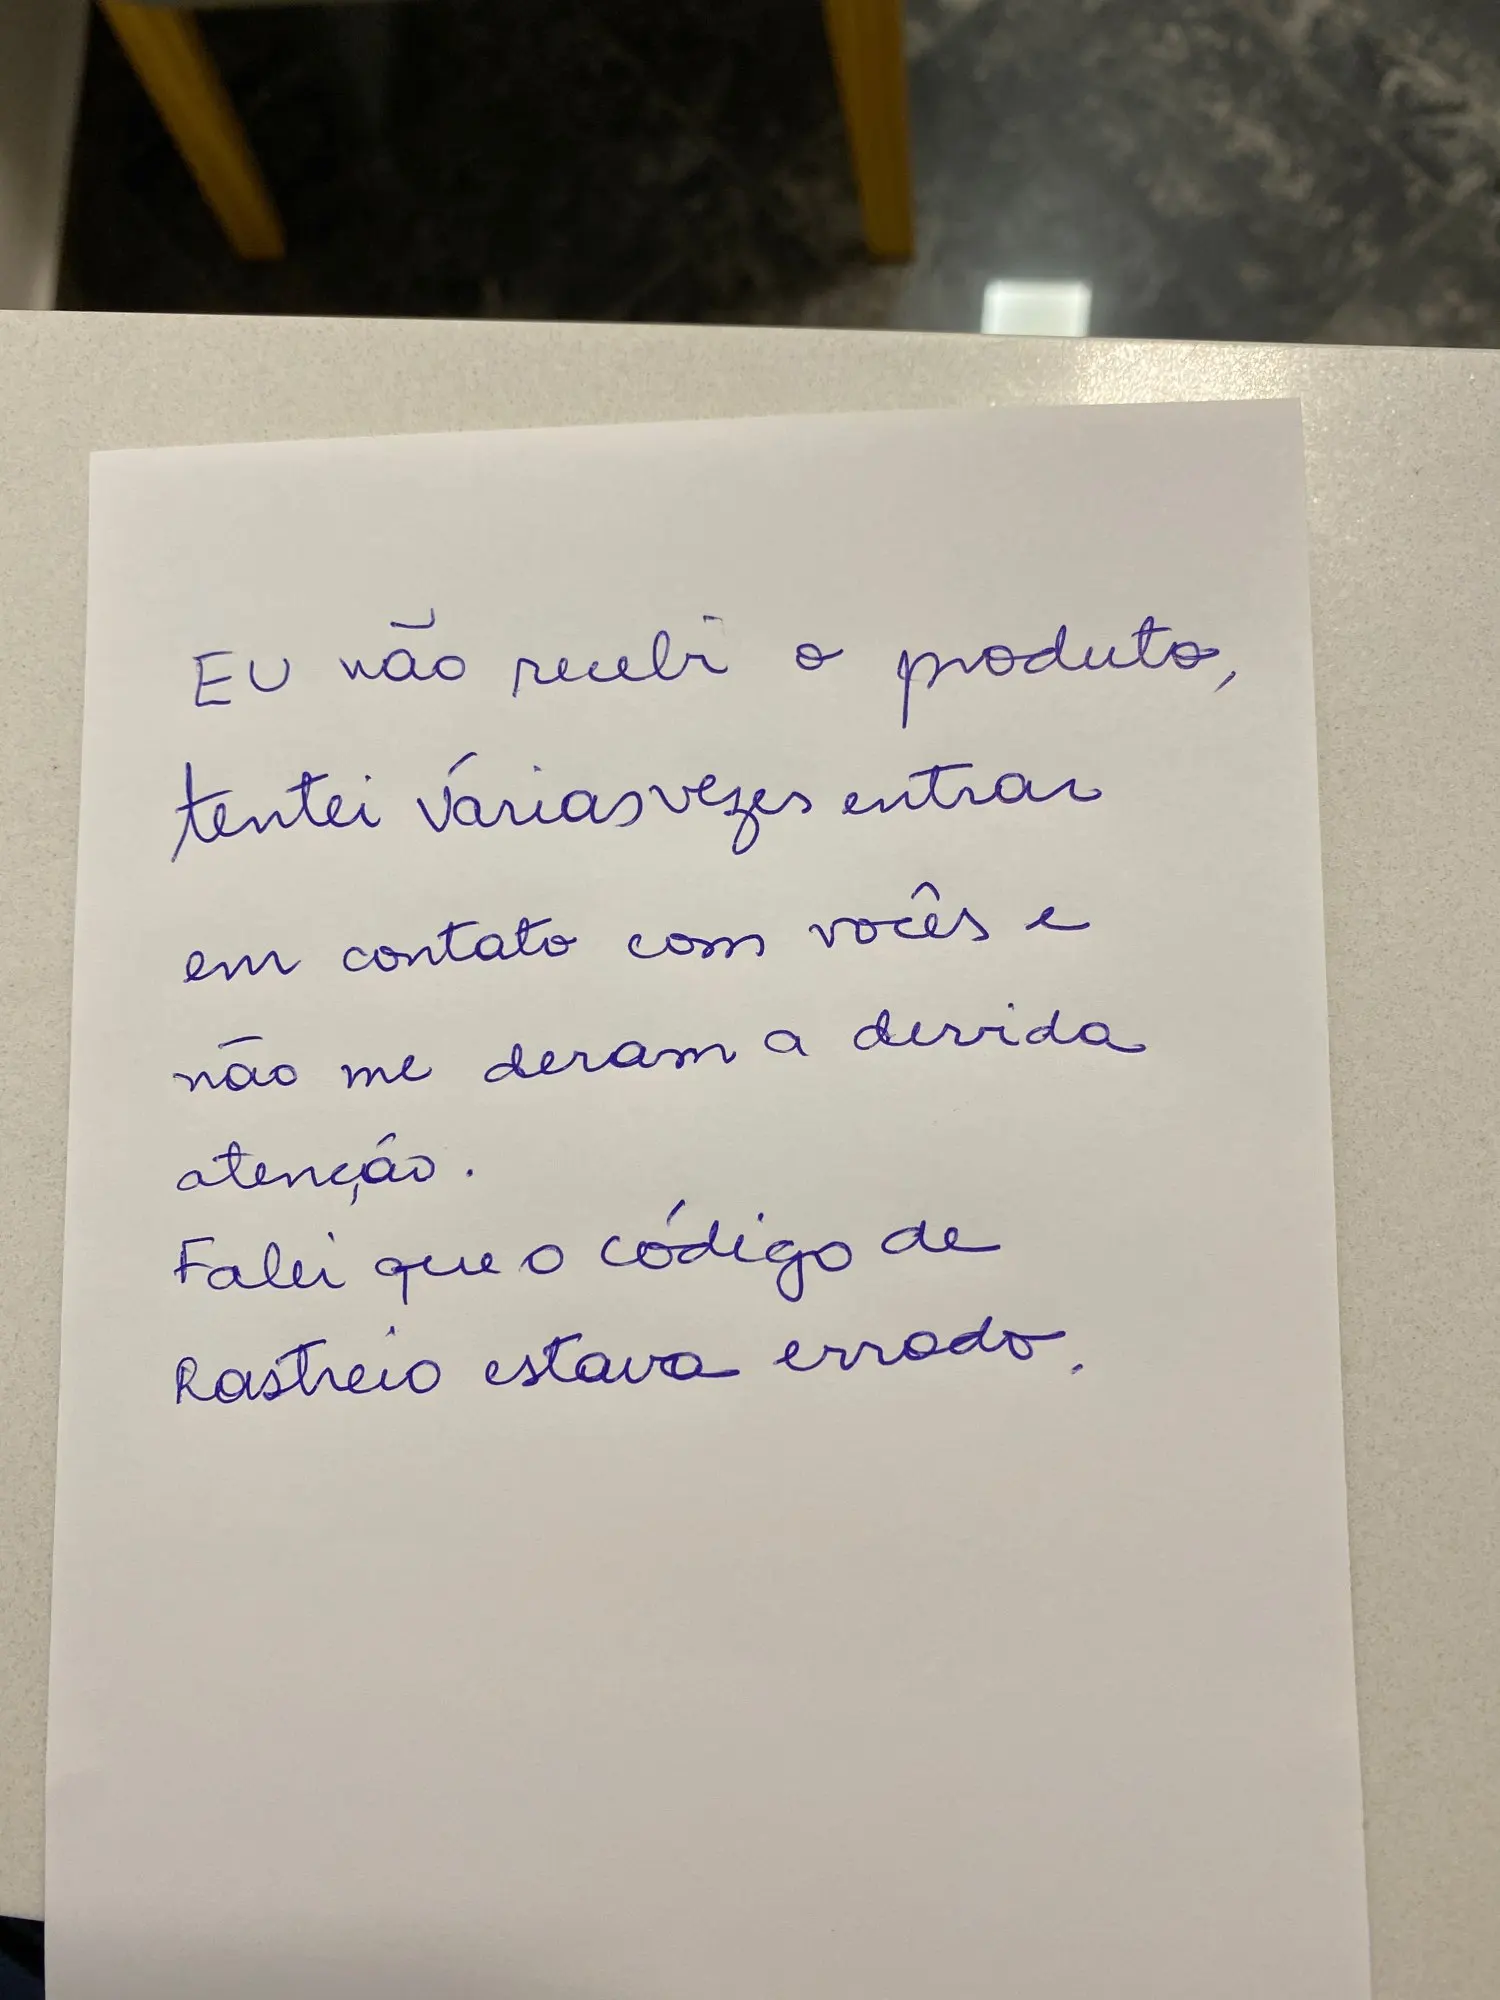 EU não recebi o produto,
tentei várias vezes entrar
em contato com vocês e
não me deram a devida
atenção.
Falei que o código de
Rastreio estava errado.